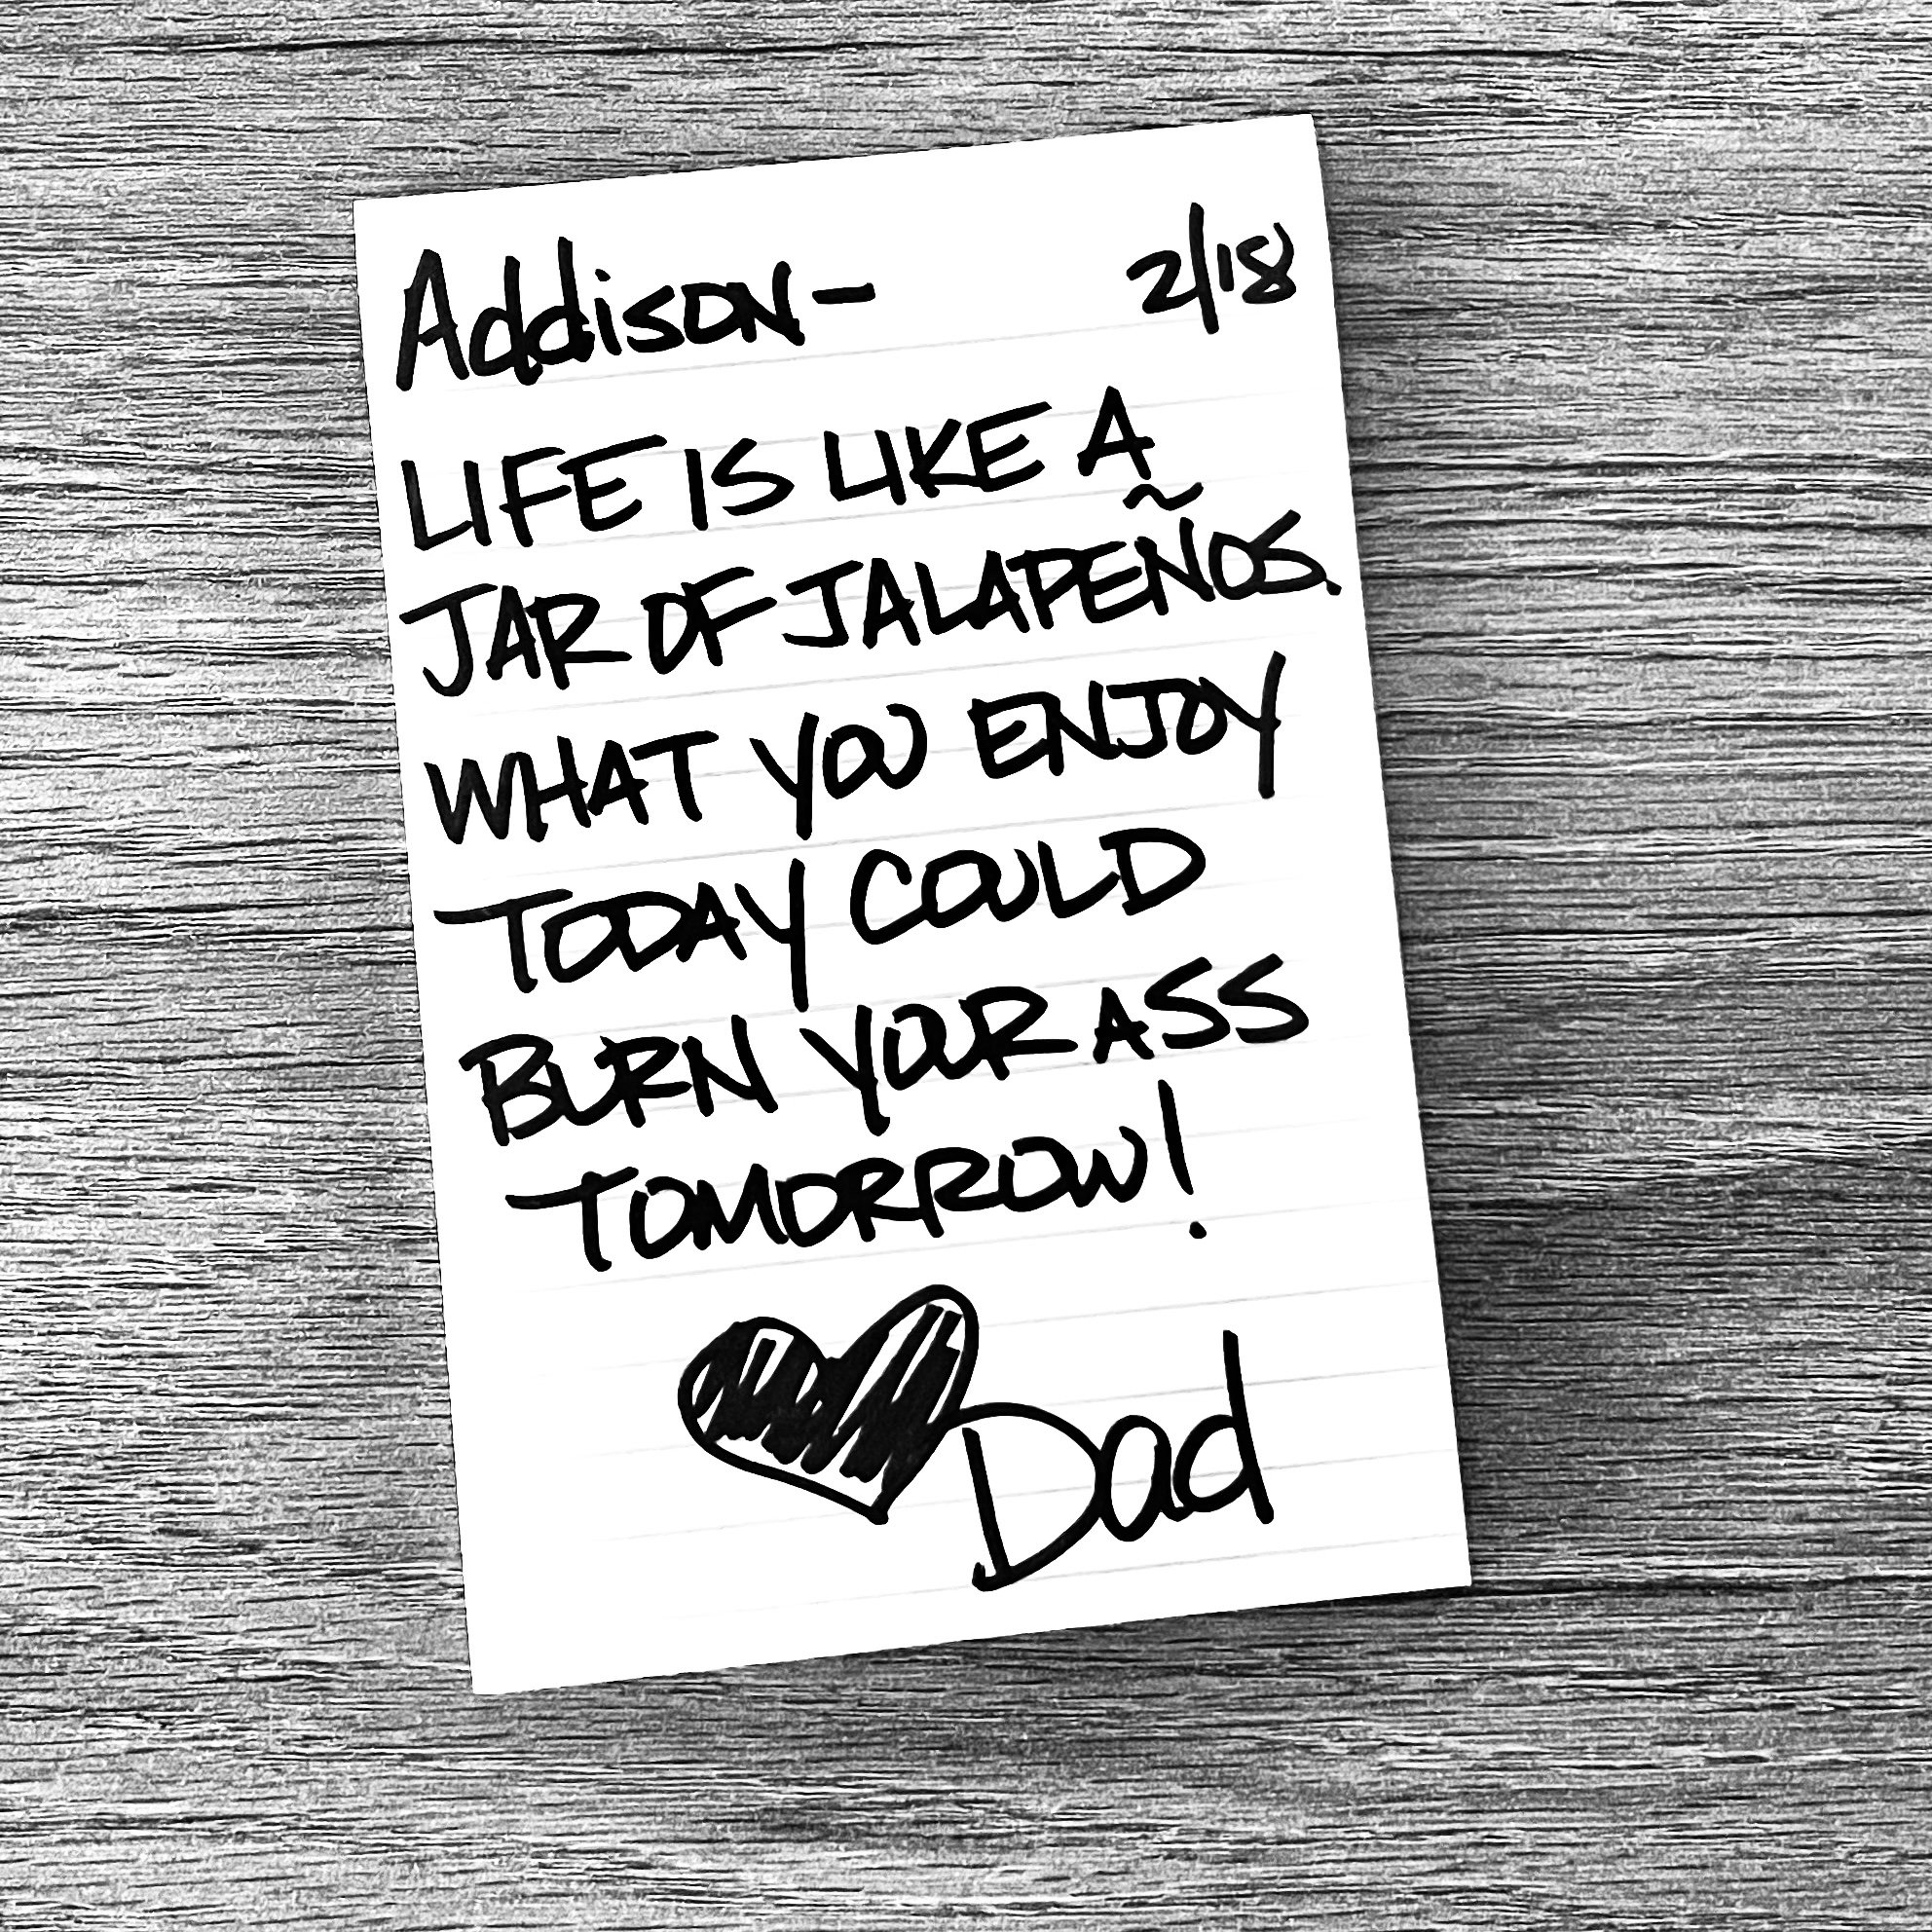 Addison- 2/18
LIFE IS LIKE A
JAR OF JALAPEÑOS.
WHAT YOU ENJOY
TODAY COULD
BURN YOUR ASS
TOMORROW!
Dad